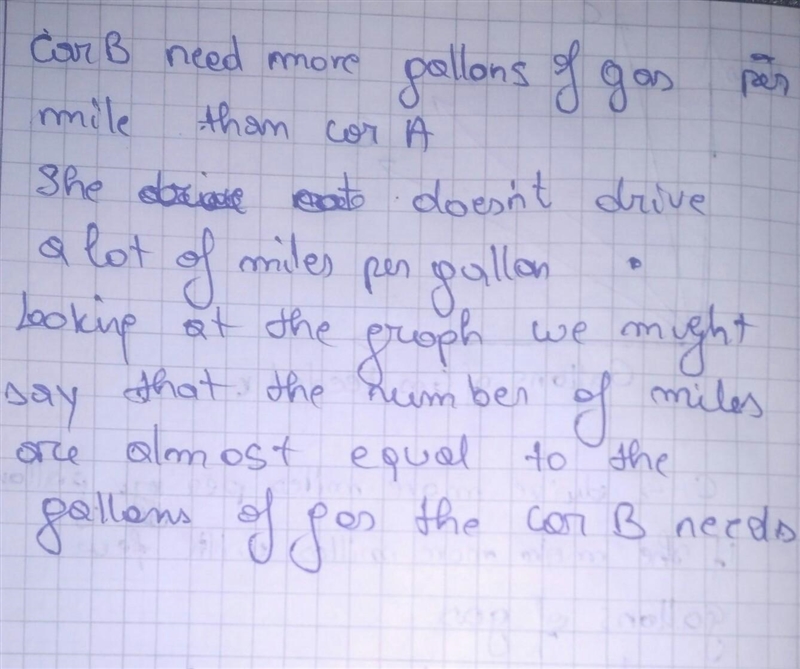 Car B need more gallons of gas per
mile than car A
She doesn't drive
a lot of miles per gallon
Looking at the graph we might
say that the number of miles
are almost equal to the
gallons of gas the car B needs